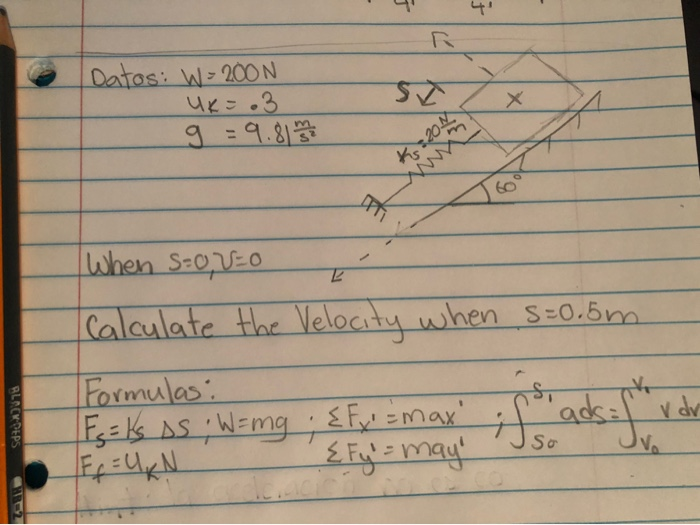 4' 4'
Datos: W=200N
uk= .3
g = 9.81 m/s²
S
Ks=20 N/m
x
60°
When S=0, V=0
Calculate the Velocity when s=0.5m
Formulas:
Fs=Ks ΔS ; W=mg ; ΣFx'=max' ; ∫S₀^S₁ ads=∫V₀^V₁ v dv
Ff=UkN ΣFy'=may'
BLACK PEPS HB=2